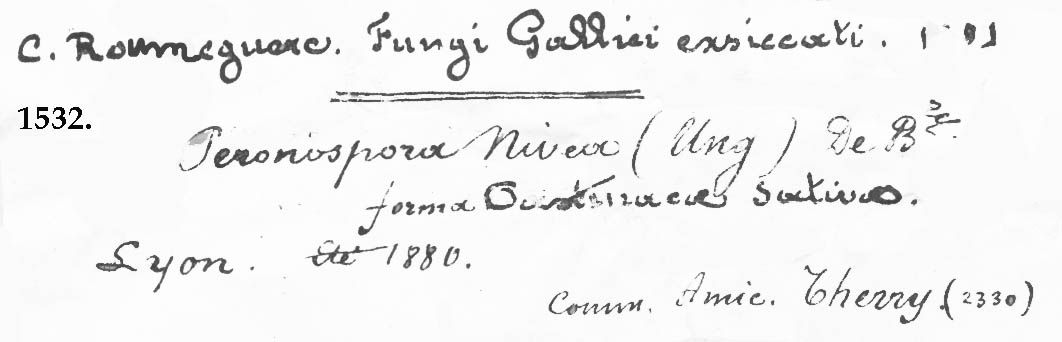 C. Roumeguere. Fungi Gallici exsiccati.
1532.
Peronospora Nivea (Ung) De By.
forma Pastinacæ Sativæ.
Lyon. Eté 1880.
Comm. Amic. Therry. (2330)